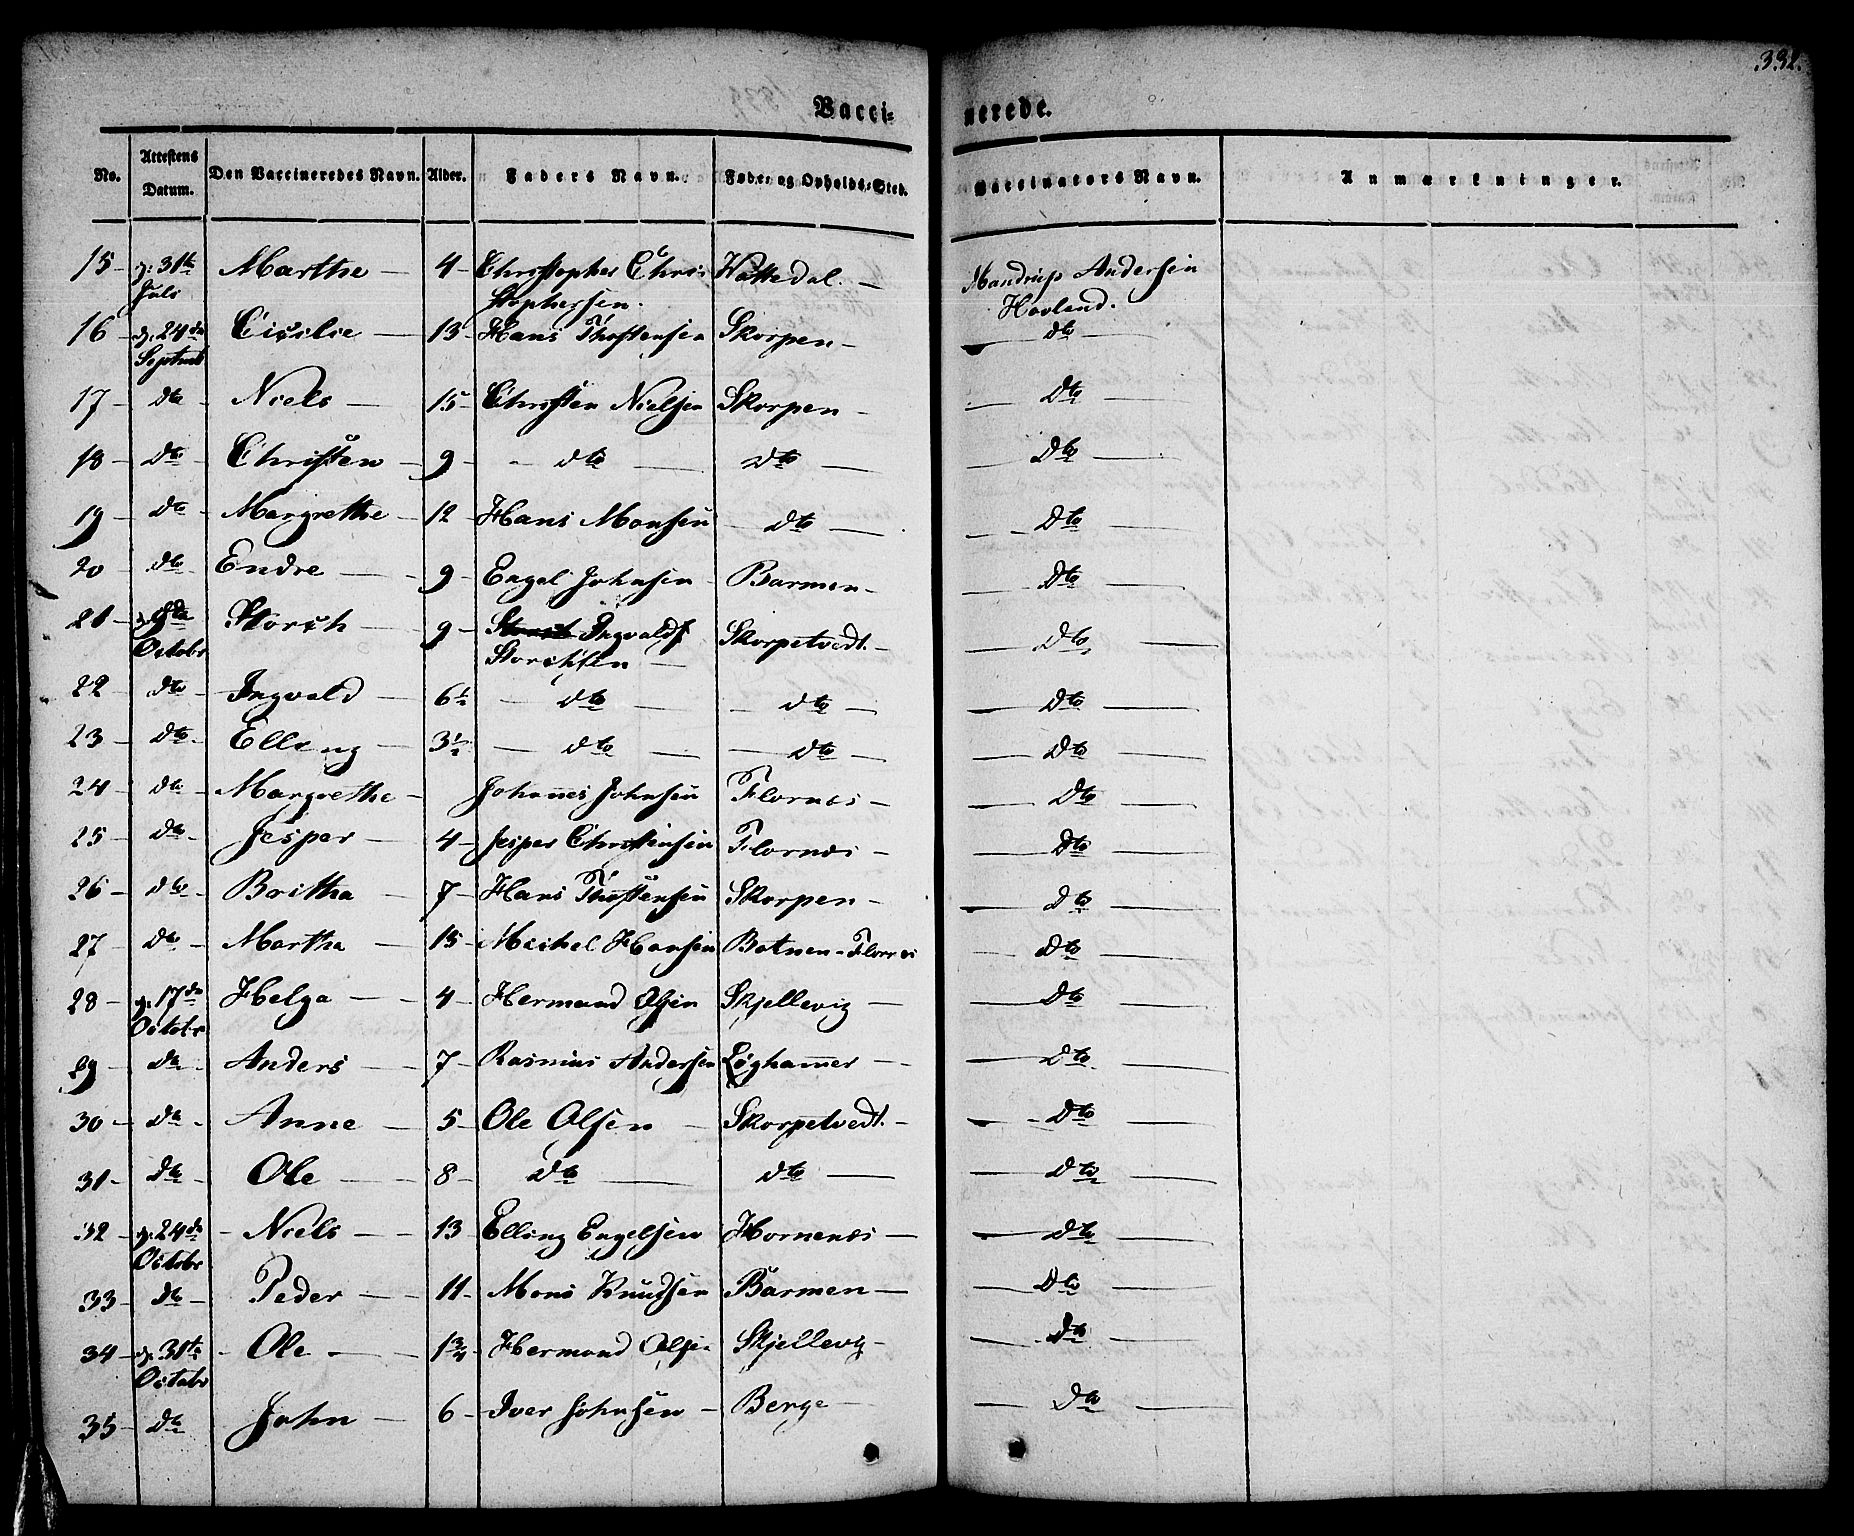 332.
Vaccinerede.
No. Attestens Datum. Den Vaccineredes Navn. Alder. Faders Navn. Føde- og Opholds-Sted. Vaccinateurs Navn. Anmærkninger.
15 - d: 31te Juli Marthe - 4 - Christopher Christophersen. Wattedal. - Mandrup Andersen Hovland.
16 - d: 24de Septemb Cicilie - 13 - Hans Thostensen Skorpen - dto
17 - dto - Niels - 15 - Christen Nielsen Skorpen - dto
18 - dto - Christen - 9 - dto - dto - dto
19 - dto - Margrethe - 12 - Hans Monsen - dto - dto
20 - dto - Endre - 9 - Engel Johnsen - Barmen - dto
21 - Octobr Storch - 9 - Ingvald Storchsen - Skorpetvedt. - dto
22 - dto - Ingvald - 6½ - dto - dto - dto
23 - dto - Elling - 3½ - dto - dto - dto
24 - dto - Margrethe - Johannes Johnsen Flornes - dto
25 - dto - Jesper - 4 - Jesper Christensen Flornes - dto
26 - dto - Britha - 7 - Hans Thostensen Skorpen - dto
27 - dto - Martha - 15 - Michel Hansen Botnen - Flornes dto
28 - d: 17de Octobr Helga - 4 - Hermand Olsen Skjellevig - dto
29 - dto - Anders - 7 - Rasmus Andersen Løghammer - dto
30 - dto - Anne - 5 - Ole Olsen - Skorpetvedt. - dto
31 - dto - Ole - 8 - dto - dto - dto
32 - d: 24de Octobr - Niels - 13 Elling Engelsen Hornenes - dto
33 - dto - Peder - 11 - Mons Knudsen Barmen - dto
34 - d: 31te Octobr - Ole - 1¾ - Hermand Olsen Skjellevig - dto
35 - dto John - 6 - Iver Johnsen - Berge - dto